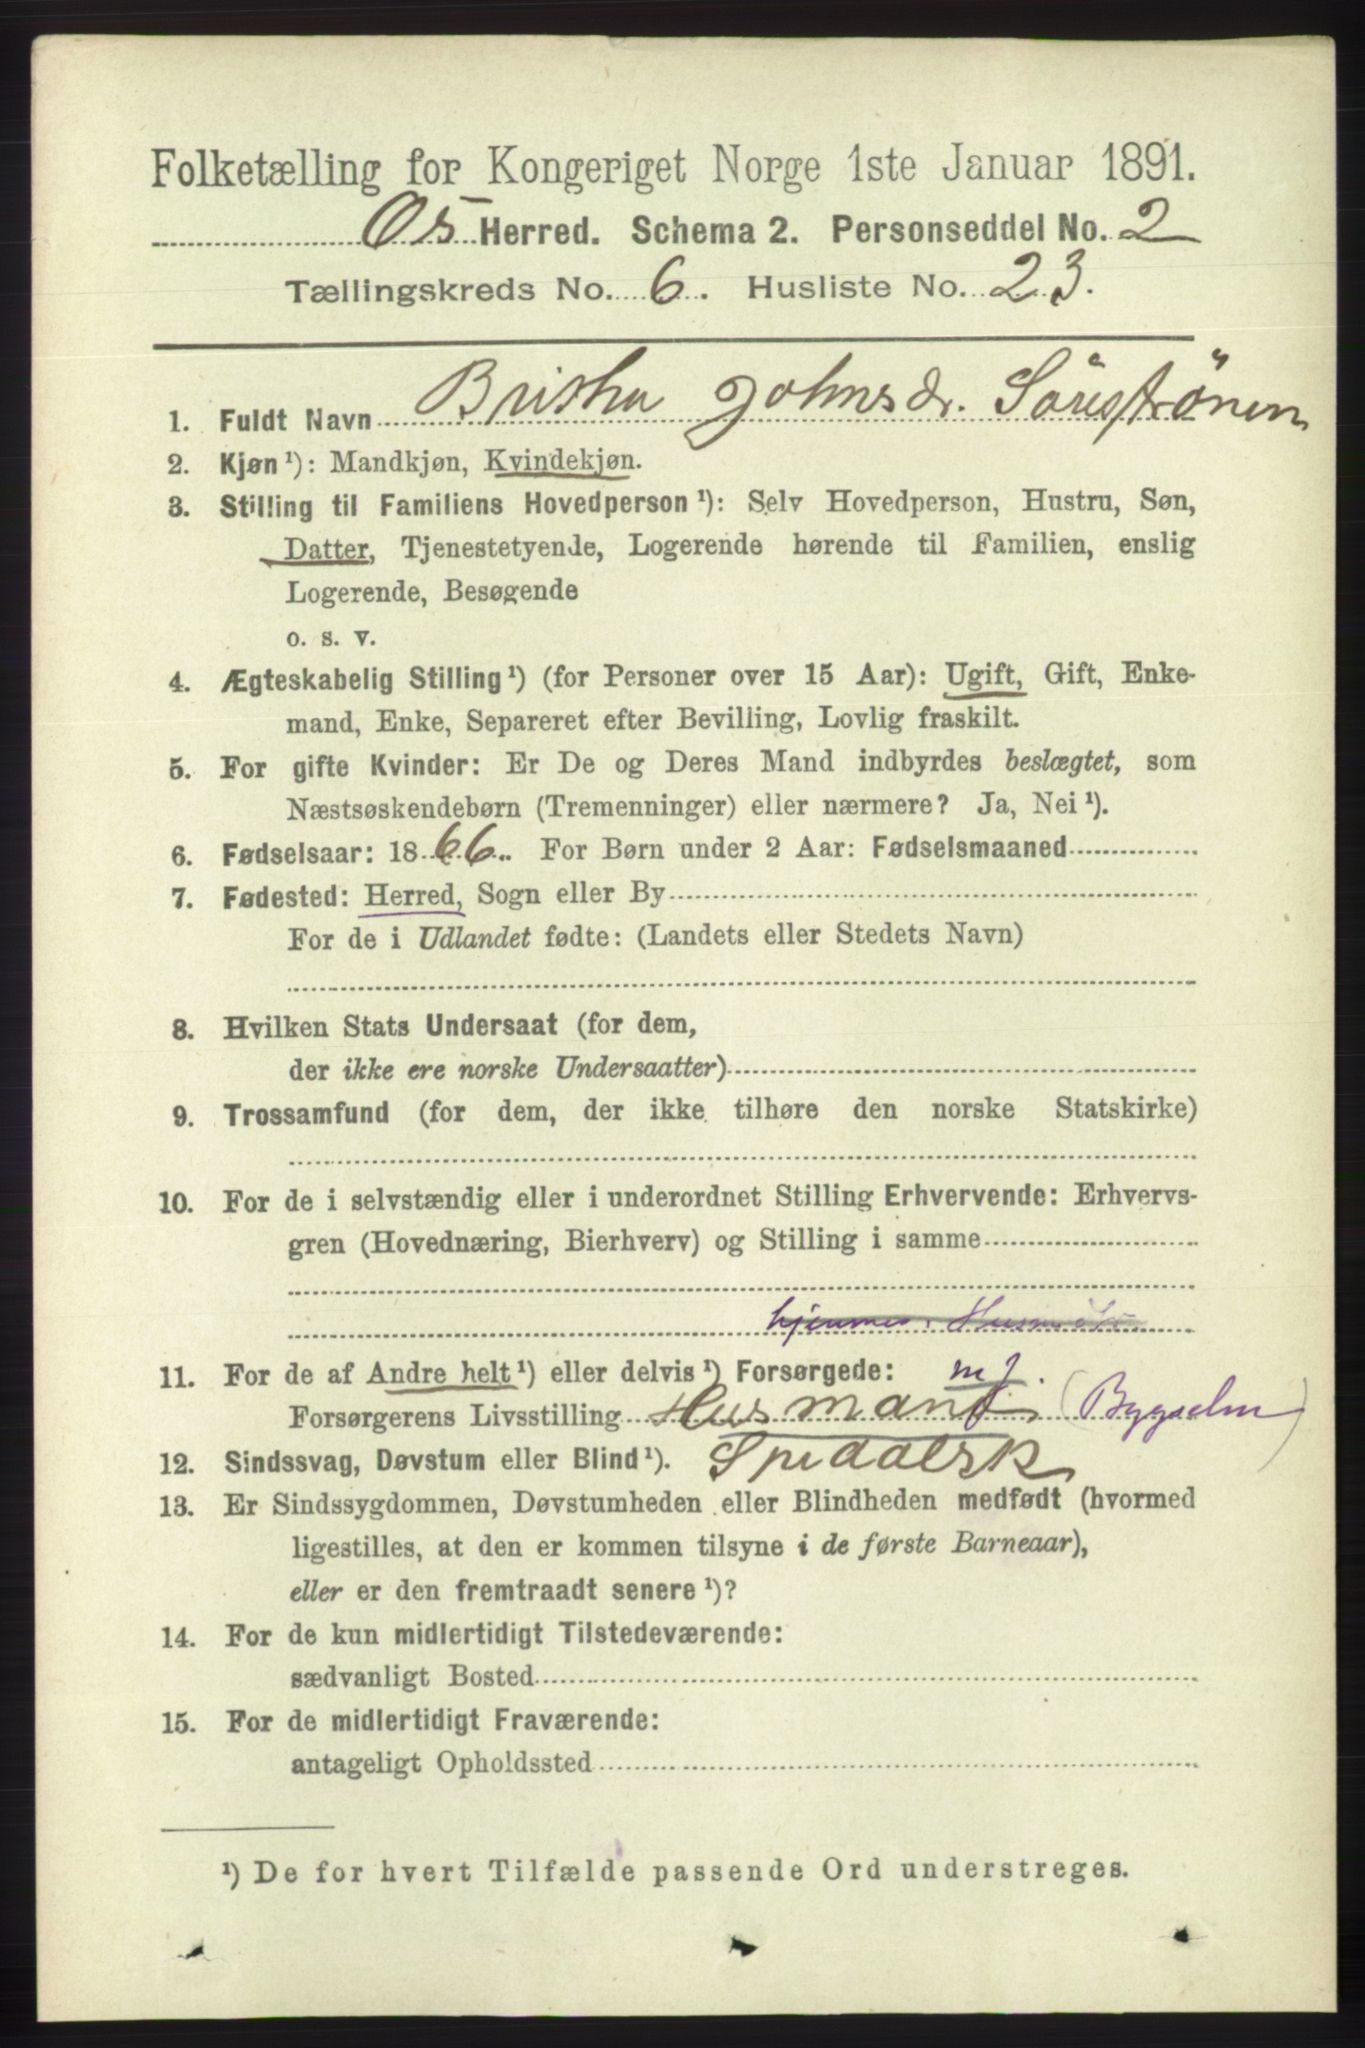 Folketælling for Kongeriget Norge 1ste Januar 1891.
Os Herred. Schema 2. Personseddel No. 2
Tællingskreds No. 6. Husliste No. 23.
1. Fuldt Navn Britha Johnsdr. Söreströnen
2. Kjøn ¹): Mandkjøn, Kvindekjøn.
3. Stilling til Familiens Hovedperson ¹): Selv Hovedperson, Hustru, Søn,
Datter, Tjenestetyende, Logerende hørende til Familien, enslig
Logerende, Besøgende
o. s. v.
4. Ægteskabelig Stilling ¹) (for Personer over 15 Aar): Ugift, Gift, Enke-
mand, Enke, Separeret efter Bevilling, Lovlig fraskilt.
5. For gifte Kvinder: Er De og Deres Mand indbyrdes beslægtet, som
Næstsøskendebørn (Tremenninger) eller nærmere? Ja, Nei ¹).
6. Fødselsaar: 1866. For Børn under 2 Aar: Fødselsmaaned
7. Fødested: Herred, Sogn eller By
For de i Udlandet fødte: (Landets eller Stedets Navn)
8. Hvilken Stats Undersaat (for dem,
der ikke ere norske Undersaatter)
9. Trossamfund (for dem, der ikke tilhøre den norske Statskirke)
10. For de i selvstændig eller i underordnet Stilling Erhvervende: Erhvervs-
gren (Hovednæring, Bierhverv) og Stilling i samme
hjemmev.
11. For de af Andre helt ¹) eller delvis ¹) Forsørgede: m J.
Forsørgerens Livsstilling Husmand (Bygselm)
12. Sindssvag, Døvstum eller Blind ¹). Spedalsk
13. Er Sindssygdommen, Døvstumheden eller Blindheden medfødt (hvormed
ligestilles, at den er kommen tilsyne i de første Barneaar),
eller er den fremtraadt senere ¹)?
14. For de kun midlertidigt Tilstedeværende:
sædvanligt Bosted
15. For de midlertidigt Fraværende:
antageligt Opholdssted
¹) De for hvert Tilfælde passende Ord understreges.